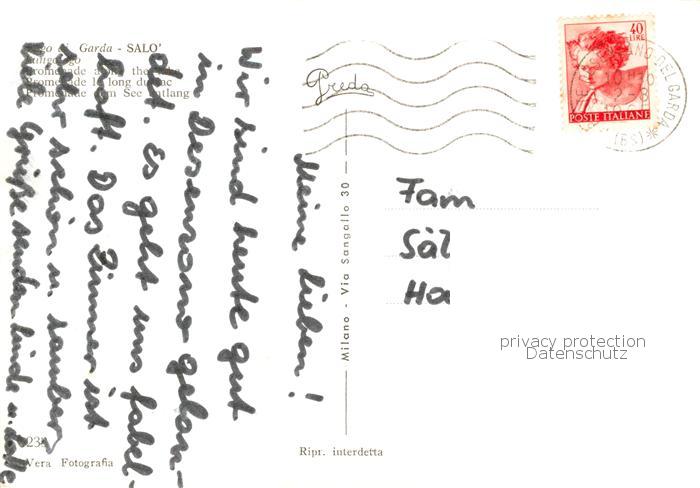 Lago di Garda - SALO'
Lungolago
Promenade along the lake
Promenade le long du lac
Promenade am See entlang
Meine Lieben!
Wir sind heute gut
in Desenzano gelan-
det. Es geht uns fabel-
haft. Das Zimmer ist
sehr schön u. sauber.
Viele Grüße senden
234
Vera Fotografia
Preda
Milano - Via Sangallo 30 -
Ripr. interdetta
40
LIRE
POSTE ITALIANE
DEL GARDA
(BS)
Fam
Säl
Ha
privacy protection
Datenschutz